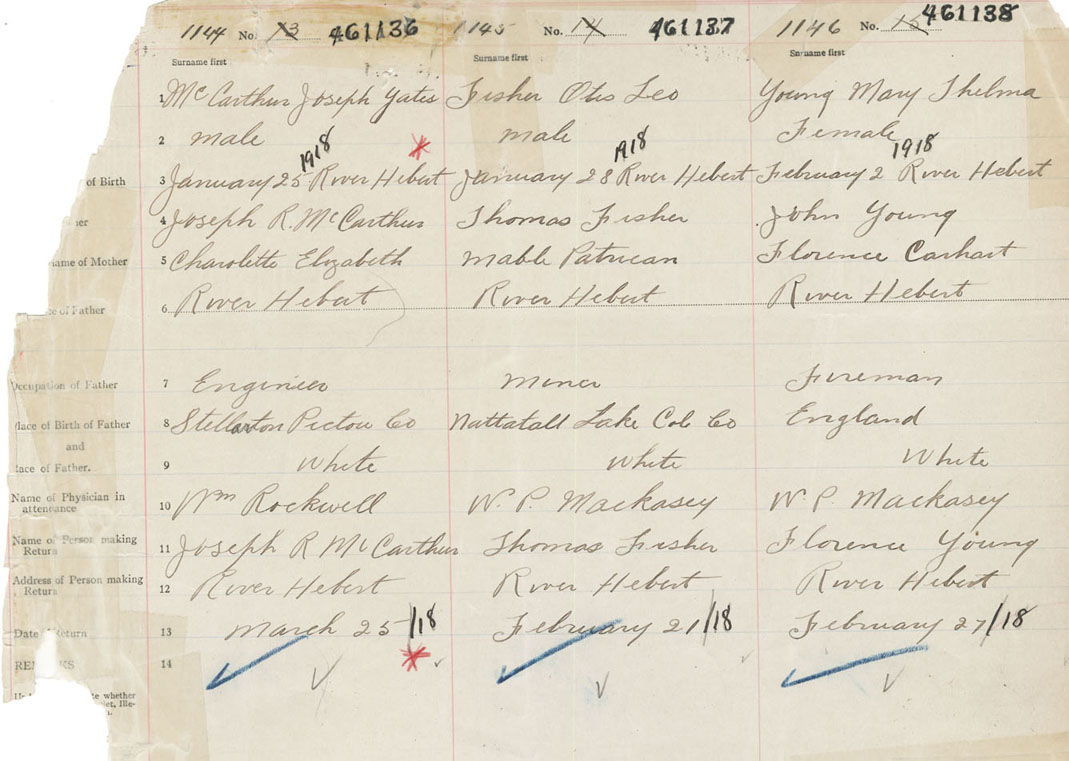 1144 No. 13 461136 1145 No. 14 461137 1146 No. 15 461138
Surname first Surname first Surname first
1 McCarthur Joseph Yates Fisher Otis Leo Young Mary Thelma
2 male male Female
1918 1918 1918
of Birth 3 January 25 River Hebert January 28 River Hebert February 2 River Hebert
4 Joseph R. McCarthur Thomas Fisher John Young
ame of Mother 5 Charolette Elizabeth Mable Patriean Florence Carhart
River Hebert River Hebert River Hebert
ce of Father 6
Occupation of Father 7 Engineer Miner Fireman
lace of Birth of Father 8 Stellarton Pictou Co Nattatall Lake Col Co England
and
Race of Father. 9 White White White
Name of Physician in attendance 10 Wm Rockwell W. P. Mackasey W. P. Mackasey
Name of Person making Return 11 Joseph R McCarthur Thomas Fisher Florence Young
Address of Person making Return 12 River Hebert River Hebert River Hebert
Date of Return 13 March 25/18 February 21/18 February 27/18
REMARKS 14
te whether